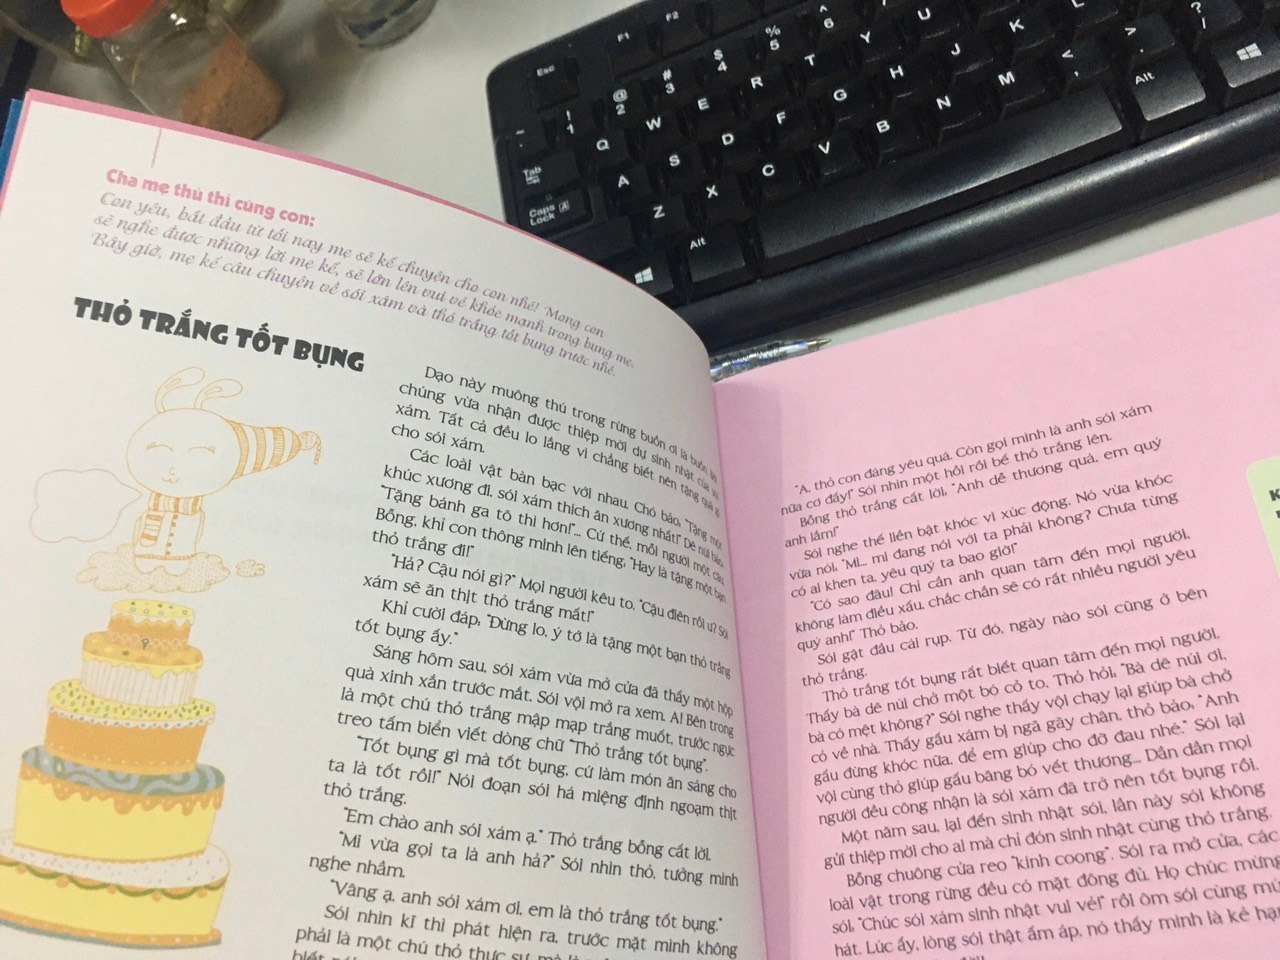 Cha mẹ thủ thỉ cùng con:
Con yêu, bắt đầu từ tối nay mẹ sẽ kể chuyện cho con nhé! Mong con
sẽ nghe được những lời mẹ kể, sẽ lớn lên vui vẻ khỏe mạnh trong bụng mẹ.
Bây giờ, mẹ kể câu chuyện về sói xám và thỏ trắng tốt bụng trước nhé.
THỎ TRẮNG TỐT BỤNG
Dạo này muông thú trong rừng buồn ơi là buồn
chúng vừa nhận được thiệp mời dự sinh nhật của
xám. Tất cả đều lo lắng vì chẳng biết nên tặng quà gì
cho sói xám.
Các loài vật bàn bạc với nhau. Chó bảo, "Tặng một
khúc xương đi, sói xám thích ăn xương nhất!" Dê núi bảo,
"Tặng bánh ga tô thì hơn!"... Cứ thế, mỗi người một câu.
Bỗng, khỉ con thông minh lên tiếng, "Hay là tặng một bạn
thỏ trắng đi!"
"Hả? Cậu nói gì?" Mọi người kêu to, "Cậu điên rồi ư? Sói
xám sẽ ăn thịt thỏ trắng mất!"
Khỉ cười đáp, "Đừng lo, ý tớ là tặng một bạn thỏ trắng
tốt bụng ấy."
Sáng hôm sau, sói xám vừa mở cửa đã thấy một hộp
quà xinh xắn trước mắt. Sói vội mở ra xem. A! Bên trong
là một chú thỏ trắng mập mạp trắng muốt, trước ngực
treo tấm biển viết dòng chữ "Thỏ trắng tốt bụng".
"Tốt bụng gì mà tốt bụng, cứ làm món ăn sáng cho
ta là tốt rồi!" Nói đoạn sói há miệng định ngoạm thịt
thỏ trắng.
"Em chào anh sói xám ạ." Thỏ trắng bỗng cất lời.
"Mi vừa gọi ta là anh hả?" Sói nhìn thỏ, tưởng mình
nghe nhầm.
"Vâng ạ, anh sói xám ơi, em là thỏ trắng tốt bụng."
Sói nhìn kĩ thì phát hiện ra, trước mặt mình không
phải là một chú thỏ thực sự, mà là
biết nói
"A, thỏ con đáng yêu quá. Còn gọi mình là anh sói xám
nữa cơ đấy!" Sói nhìn một hồi rồi bế thỏ trắng lên.
Bỗng thỏ trắng cất lời, "Anh dễ thương quá, em quý
anh lắm!"
Sói nghe thế liền bật khóc vì xúc động. Nó vừa khóc
vừa nói, "Mi... mi đang nói với ta phải không? Chưa từng
có ai khen ta, yêu quý ta bao giờ!"
"Có sao đâu! Chỉ cần anh quan tâm đến mọi người,
không làm điều xấu, chắc chắn sẽ có rất nhiều người yêu
quý anh!" Thỏ bảo.
Sói gật đầu cái rụp. Từ đó, ngày nào sói cũng ở bên
thỏ trắng.
Thỏ trắng tốt bụng rất biết quan tâm đến mọi người.
Thấy bà dê núi chở một bó cỏ to, Thỏ hỏi, "Bà dê núi ơi,
bà có mệt không?" Sói nghe thấy vội chạy lại giúp bà chở
cỏ về nhà. Thấy gấu xám bị ngã gãy chân, thỏ bảo, "Anh
gấu đừng khóc nữa, để em giúp cho đỡ đau nhé." Sói lại
vội cùng thỏ giúp gấu băng bó vết thương... Dần dần mọi
người đều công nhận là sói xám đã trở nên tốt bụng rồi.
Một năm sau, lại đến sinh nhật sói, lần này sói không
gửi thiệp mời cho ai mà chỉ đón sinh nhật cùng thỏ trắng.
Bỗng chuông cửa reo "kính coong". Sói ra mở cửa, các
loài vật trong rừng đều có mặt đông đủ. Họ chúc mừng
sói, "Chúc sói xám sinh nhật vui vẻ!" rồi ôm sói cùng múa
hát. Lúc ấy, lòng sói thật ấm áp, nó thấy mình là kẻ
K
Esc F1 F2
~ ! 1 @ 2 # 3 $ 4 % 5 ^ 6
Tab Q W E R T Y U
Caps Lock A A S D F G H J K L
Z X C V B N M < , > . ? /
Alt Alt